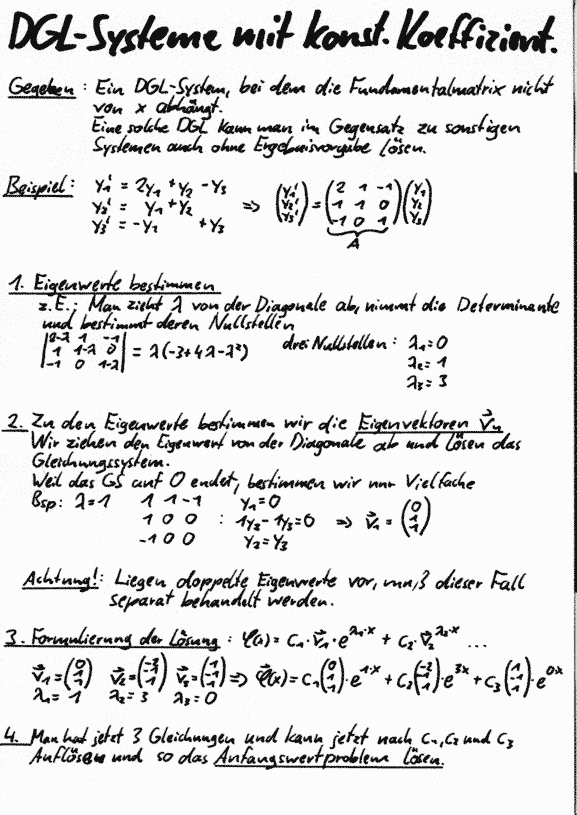 DGL-Systeme mit konst. Koeffizient.
Gegeben: Ein DGL-System, bei dem die Fundamentalmatrix nicht
von x abhängt.
Eine solche DGL kann man im Gegensatz zu sonstigen
Systemen auch ohne Ergebnisvorgabe lösen.
Beispiel: y₁' = 2y₁ + y₂ - y₃
y₂' = y₁ + y₂
y₃' = -y₁ + y₃
⇒ (y₁' y₂' y₃') = (2 1 -1, 1 1 0, -1 0 1) (y₁ y₂ y₃)
A
1. Eigenwerte bestimmen
z.E.: Man zieht λ von der Diagonale ab, nimmt die Determinante
und bestimmt deren Nullstellen
|2-λ 1 -1, 1 1-λ 0, -1 0 1-λ| = λ(-3+4λ-λ²) drei Nullstellen: λ₁=0
λ₂=1
λ₃=3
2. Zu den Eigenwerte bestimmen wir die Eigenvektoren v⃗ₙ
Wir ziehen den Eigenwert von der Diagonale ab und lösen das
Gleichungssystem.
Weil das GS auf 0 endet, bestimmen wir nur Vielfache
Bsp: λ=1 1 1 -1 y₁=0
1 0 0 : 1y₂-1y₃=0 ⇒ v⃗₁ = (0 1 1)
-1 0 0 y₂=y₃
Achtung!: Liegen doppelte Eigenwerte vor, muß dieser Fall
separat behandelt werden.
3. Formulierung der Lösung: φ(x) = c₁·v⃗₁·e^λ₁·x + c₂·v⃗₂^λ₂·x ...
v⃗₁=(0 1 1) v⃗₂=(-2 -1 1) v⃗₃=(1 -1 1) ⇒ φ⃗(x) = c₁(0 1 1)·e^1·x + c₂(-2 -1 1)·e^3x + c₃(1 -1 1)·e^0·x
λ₁=1 λ₂=3 λ₃=0
4. Man hat jetzt 3 Gleichungen und kann jetzt nach c₁,c₂ und c₃
Auflösen und so das Anfangswertproblem lösen.